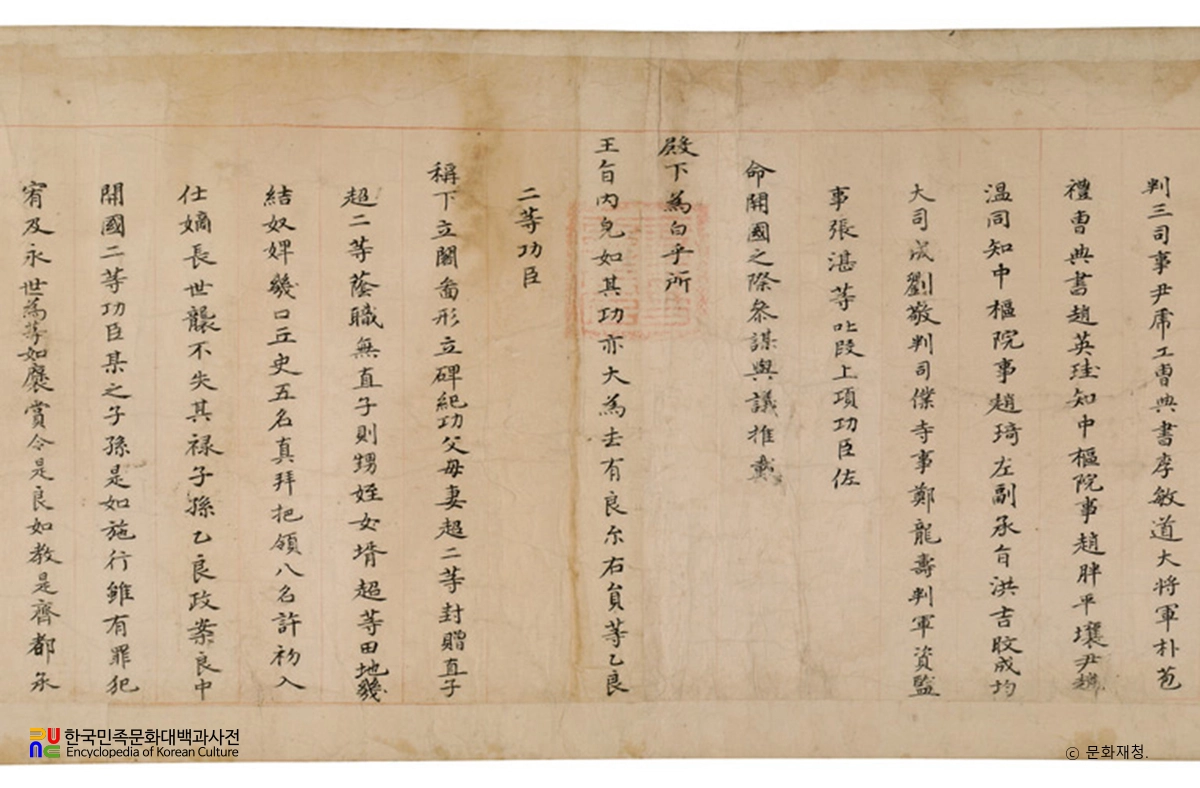 判三司事尹虎工曹典書李敏道大將軍朴苞
禮曹典書趙英珪知中樞院事趙胖平壤尹趙
溫同知中樞院事趙琦左副承旨洪吉旼成均
大司成劉敬判司僕寺事鄭龍壽判軍資監
事張湛等叱段上項功臣佐
命開國之際叅謀與議推戴
殿下為白乎所
王旨內皃如其功亦大為去有良尒右員等乙良
二等功臣
稱下立閣畵形立碑紀功父母妻超二等封贈直子
超二等蔭職無直子則甥姪女壻超等田地幾
結奴婢幾口丘史五名真拜把領八名許初入
仕嫡長世襲不失其祿子孫乙良政案良中
開國二等功臣某之子孫是如施行雖有罪犯
宥及永世為等如褒賞令是良如教是齊都承
한국민족문화대백과사전
Encyclopedia of Korean Culture
ⓒ 문화재청.